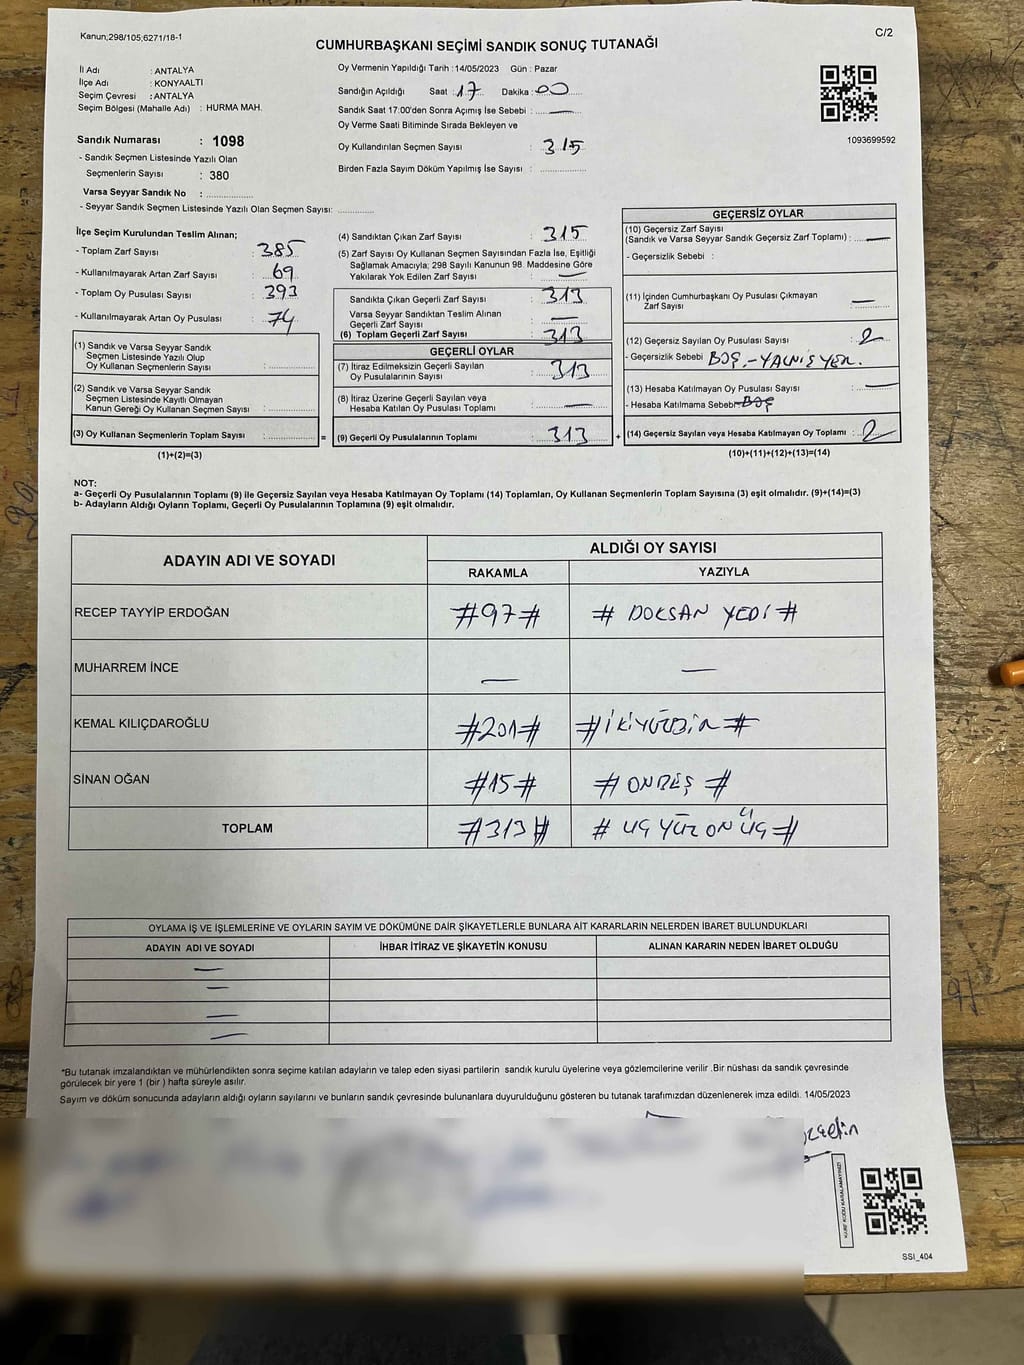 Kanun;298/105;6271/18-1
C/2
CUMHURBAŞKANI SEÇİMİ SANDIK SONUÇ TUTANAĞI
İl Adı : ANTALYA
İlçe Adı : KONYAALTI
Seçim Çevresi : ANTALYA
Seçim Bölgesi (Mahalle Adı) : HURMA MAH.
Oy Vermenin Yapıldığı Tarih : 14/05/2023 Gün : Pazar
Sandığın Açıldığı Saat : 17 Dakika : 00
Sandık Saat 17:00'den Sonra Açımış İse Sebebi : —
Oy Verme Saati Bitiminde Sırada Bekleyen ve
Oy Kullandırılan Seçmen Sayısı : 315
Birden Fazla Sayım Döküm Yapılmış İse Sayısı : ..................
1093699592
Sandık Numarası : 1098
- Sandık Seçmen Listesinde Yazılı Olan
Seçmenlerin Sayısı : 380
Varsa Seyyar Sandık No : ..................
- Seyyar Sandık Seçmen Listesinde Yazılı Olan Seçmen Sayısı: ..............
İlçe Seçim Kurulundan Teslim Alınan;
- Toplam Zarf Sayısı : 385
- Kullanılmayarak Artan Zarf Sayısı : 69
- Toplam Oy Pusulası Sayısı : 393
- Kullanılmayarak Artan Oy Pusulası : 74
(1) Sandık ve Varsa Seyyar Sandık
Seçmen Listesinde Yazılı Olup
Oy Kullanan Seçmenlerin Sayısı : ..................
(2) Sandık ve Varsa Seyyar Sandık
Seçmen Listesinde Kayıtlı Olmayan
Kanun Gereği Oy Kullanan Seçmen Sayısı : ..................
(3) Oy Kullanan Seçmenlerin Toplam Sayısı : .................. =
(1)+(2)=(3)
(4) Sandıktan Çıkan Zarf Sayısı : 315
(5) Zarf Sayısı Oy Kullanan Seçmen Sayısından Fazla İse, Eşitliği
Sağlamak Amacıyla; 298 Sayılı Kanunun 98. Maddesine Göre
Yakılarak Yok Edilen Zarf Sayısı : —
Sandıkta Çıkan Geçerli Zarf Sayısı : 313
Varsa Seyyar Sandıktan Teslim Alınan
Geçerli Zarf Sayısı : —
(6) Toplam Geçerli Zarf Sayısı : 313
GEÇERLİ OYLAR
(7) İtiraz Edilmeksizin Geçerli Sayılan
Oy Pusulalarının Sayısı : 313
(8) İtiraz Üzerine Geçerli Sayılan veya
Hesaba Katılan Oy Pusulası Toplamı : —
(9) Geçerli Oy Pusulalarının Toplamı : 313 +
GEÇERSİZ OYLAR
(10) Geçersiz Zarf Sayısı
(Sandık ve Varsa Seyyar Sandık Geçersiz Zarf Toplamı) : —
- Geçersizlik Sebebi :
(11) İçinden Cumhurbaşkanı Oy Pusulası Çıkmayan
Zarf Sayısı : —
(12) Geçersiz Sayılan Oy Pusulası Sayısı : 2
- Geçersizlik Sebebi BOŞ - YALNIŞ YER.
(13) Hesaba Katılmayan Oy Pusulası Sayısı : —
- Hesaba Katılmama Sebebi BOŞ
(14) Geçersiz Sayılan veya Hesaba Katılmayan Oy Toplamı : 2
(10)+(11)+(12)+(13)=(14)
NOT:
a- Geçerli Oy Pusulalarının Toplamı (9) ile Geçersiz Sayılan veya Hesaba Katılmayan Oy Toplamı (14) Toplamları, Oy Kullanan Seçmenlerin Toplam Sayısına (3) eşit olmalıdır. (9)+(14)=(3)
b- Adayların Aldığı Oyların Toplamı, Geçerli Oy Pusulalarının Toplamına (9) eşit olmalıdır.
ADAYIN ADI VE SOYADI ALDIĞI OY SAYISI
RAKAMLA YAZIYLA
RECEP TAYYİP ERDOĞAN #97# # DOKSAN YEDİ #
MUHARREM İNCE — —
KEMAL KILIÇDAROĞLU #201# #İKİYÜZBİR#
SİNAN OĞAN #15# # ONBEŞ #
TOPLAM #313# # ÜÇ YÜZ ON ÜÇ #
OYLAMA İŞ VE İŞLEMLERİNE VE OYLARIN SAYIM VE DÖKÜMÜNE DAİR ŞİKAYETLERLE BUNLARA AİT KARARLARIN NELERDEN İBARET BULUNDUKLARI
ADAYIN ADI VE SOYADI İHBAR İTİRAZ VE ŞİKAYETİN KONUSU ALINAN KARARIN NEDEN İBARET OLDUĞU
—
—
—
—
*Bu tutanak imzalandıktan ve mühürlendikten sonra seçime katılan adayların ve talep eden siyasi partilerin sandık kurulu üyelerine veya gözlemcilerine verilir .Bir nüshası da sandık çevresinde
görülecek bir yere 1 (bir ) hafta süreyle asılır.
Sayım ve döküm sonucunda adayların aldığı oyların sayılarını ve bunların sandık çevresinde bulunanlara duyurulduğunu gösteren bu tutanak tarafımızdan düzenlenerek imza edildi. 14/05/2023
KARE KODU KARALAMAYINIZ!
SSI_404